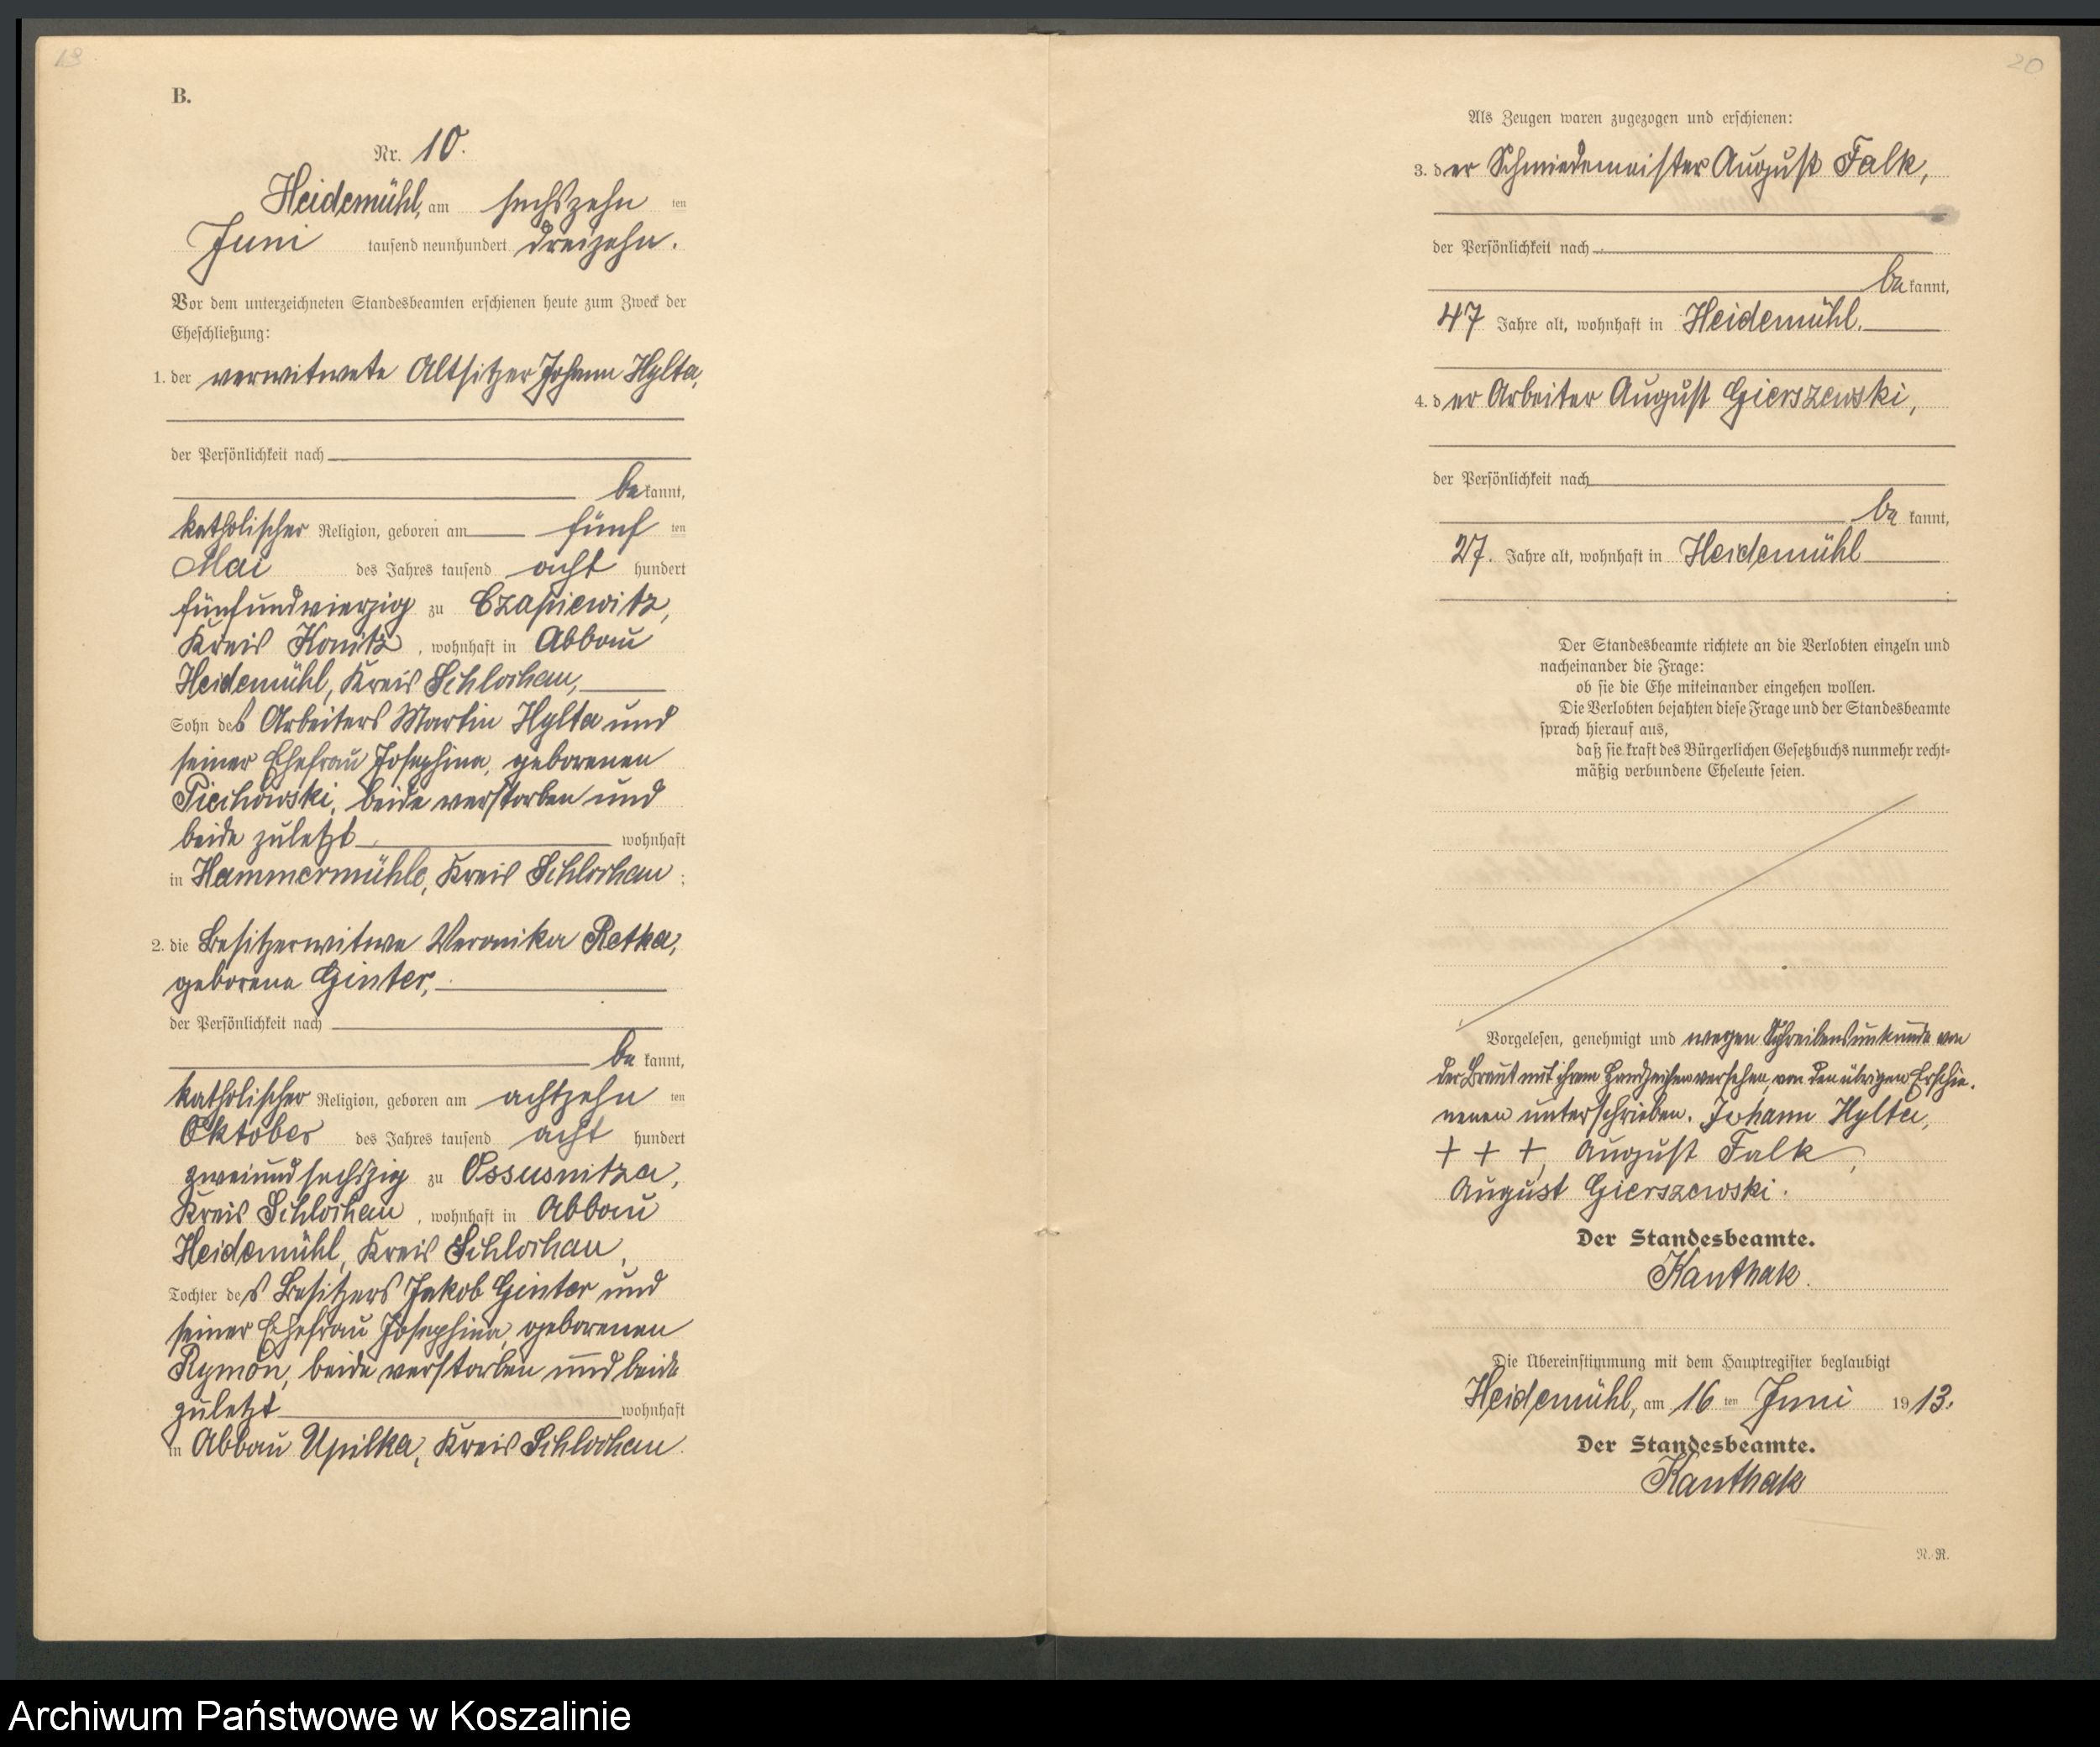 13
B.
Nr. 10.
Heidemühl, am sechszehn ten
Juni tausend neunhundert dreizehn.
Vor dem unterzeichneten Standesbeamten erschienen heute zum Zweck der
Eheschließung:
1. der verwitwete Altsitzer Johann Hylta,
der Persönlichkeit nach
be kannt,
katholischer Religion, geboren am fünf ten
Mai des Jahres tausend acht hundert
fünfundvierzig zu Czapiewitz,
Kreis Konitz, wohnhaft in Abbau
Heidemühl, Kreis Schlochau,
Sohn des Arbeiters Martin Hylta und
seiner Ehefrau Josephina, geborenen
Piechowski, beide verstorben und
beide zuletzt wohnhaft
in Hammermühle, Kreis Schlochau;
2. die Besitzerwitwe Veronika Retka,
geborene Ginter,
der Persönlichkeit nach
be kannt,
katholischer Religion, geboren am achtzehn ten
Oktober des Jahres tausend acht hundert
zweiundsechszig zu Ossusnitza,
Kreis Schlochau, wohnhaft in Abbau
Heidemühl, Kreis Schlochau,
Tochter des Besitzers Jakob Ginter und
seiner Ehefrau Josephina, geborenen
Rymon, beide verstorben und beide
zuletzt wohnhaft
in Abbau Upilka, Kreis Schlochau.
20
Als Zeugen waren zugezogen und erschienen:
3. der Schmiedemeister August Falk,
der Persönlichkeit nach
be kannt,
47 Jahre alt, wohnhaft in Heidemühl.
4. der Arbeiter August Gierszewski,
der Persönlichkeit nach
be kannt,
27. Jahre alt, wohnhaft in Heidemühl
Der Standesbeamte richtete an die Verlobten einzeln und
nacheinander die Frage:
ob sie die Ehe miteinander eingehen wollen.
Die Verlobten bejahten diese Frage und der Standesbeamte
sprach hierauf aus,
daß sie kraft des Bürgerlichen Gesetzbuchs nunmehr recht-
mäßig verbundene Eheleute seien.
Vorgelesen, genehmigt und wegen Schreibensunkunde von
der Braut mit ihrem Handzeichen versehen, von den übrigen Erschie-
nenen unterschrieben. Johann Hylta,
+ + +, August Falk,
August Gierszewski.
Der Standesbeamte.
Kanthak.
Die Übereinstimmung mit dem Hauptregister beglaubigt
Heidemühl, am 16 ten Juni 1913.
Der Standesbeamte.
Kanthak
N. R.
Archiwum Państwowe w Koszalinie